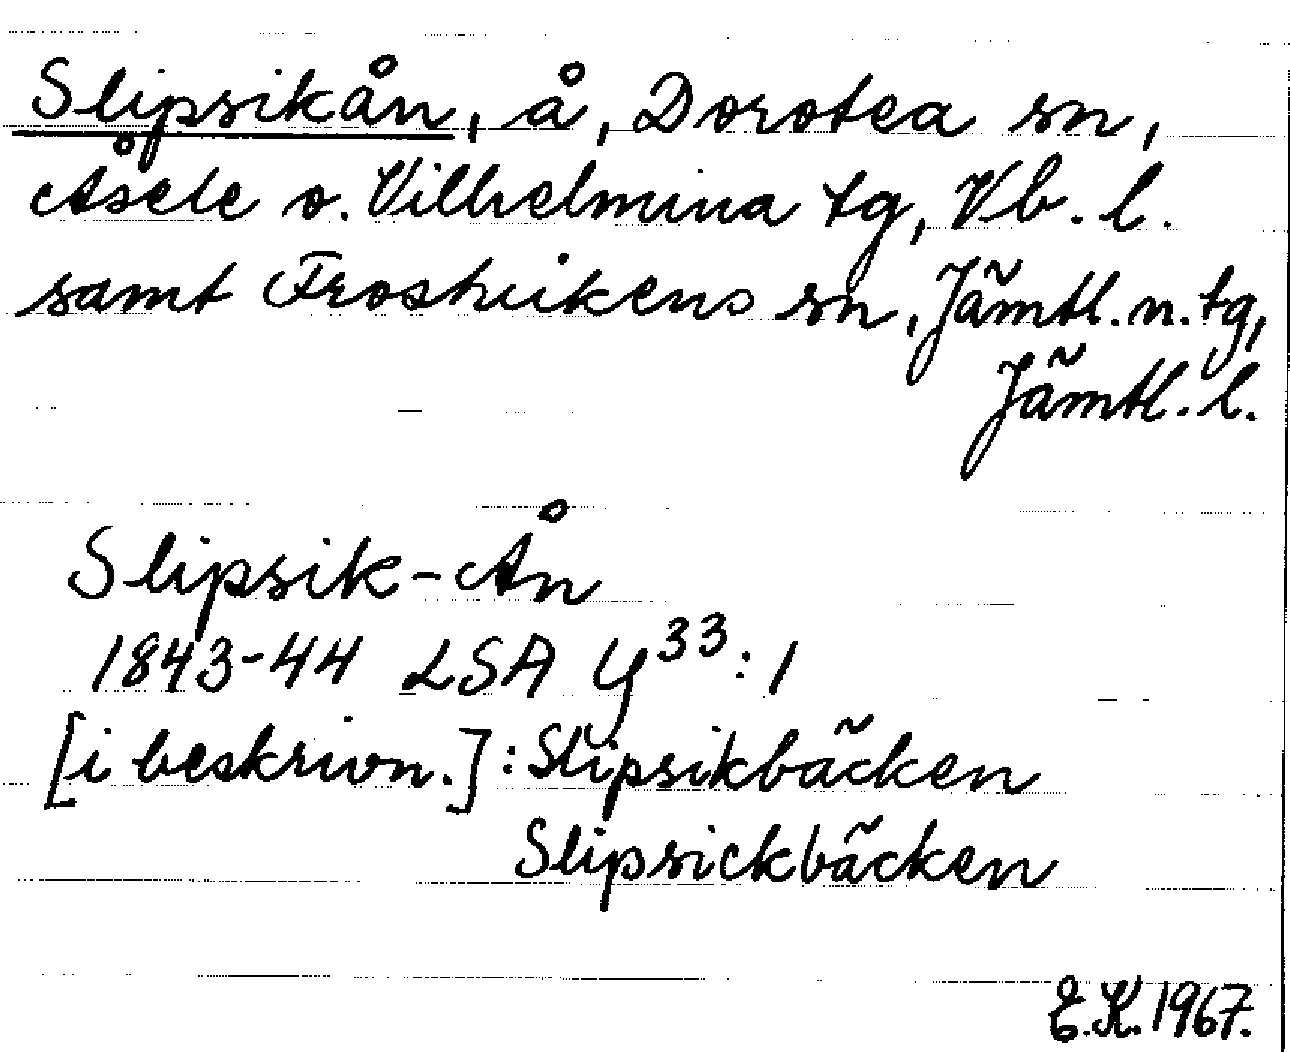 Slipsikån, å, Dorotea sn,
Åsele o. Vilhelmina tg, Vb. l.
samt Frostvikens sn, Jämtl. n. tg,
Jämtl. l.
Slipsik-Ån
1843-44 LSA Y33:1
[i beskrivn.]: Slipsikbäcken
Slipsickbäcken
E.K. 1967.